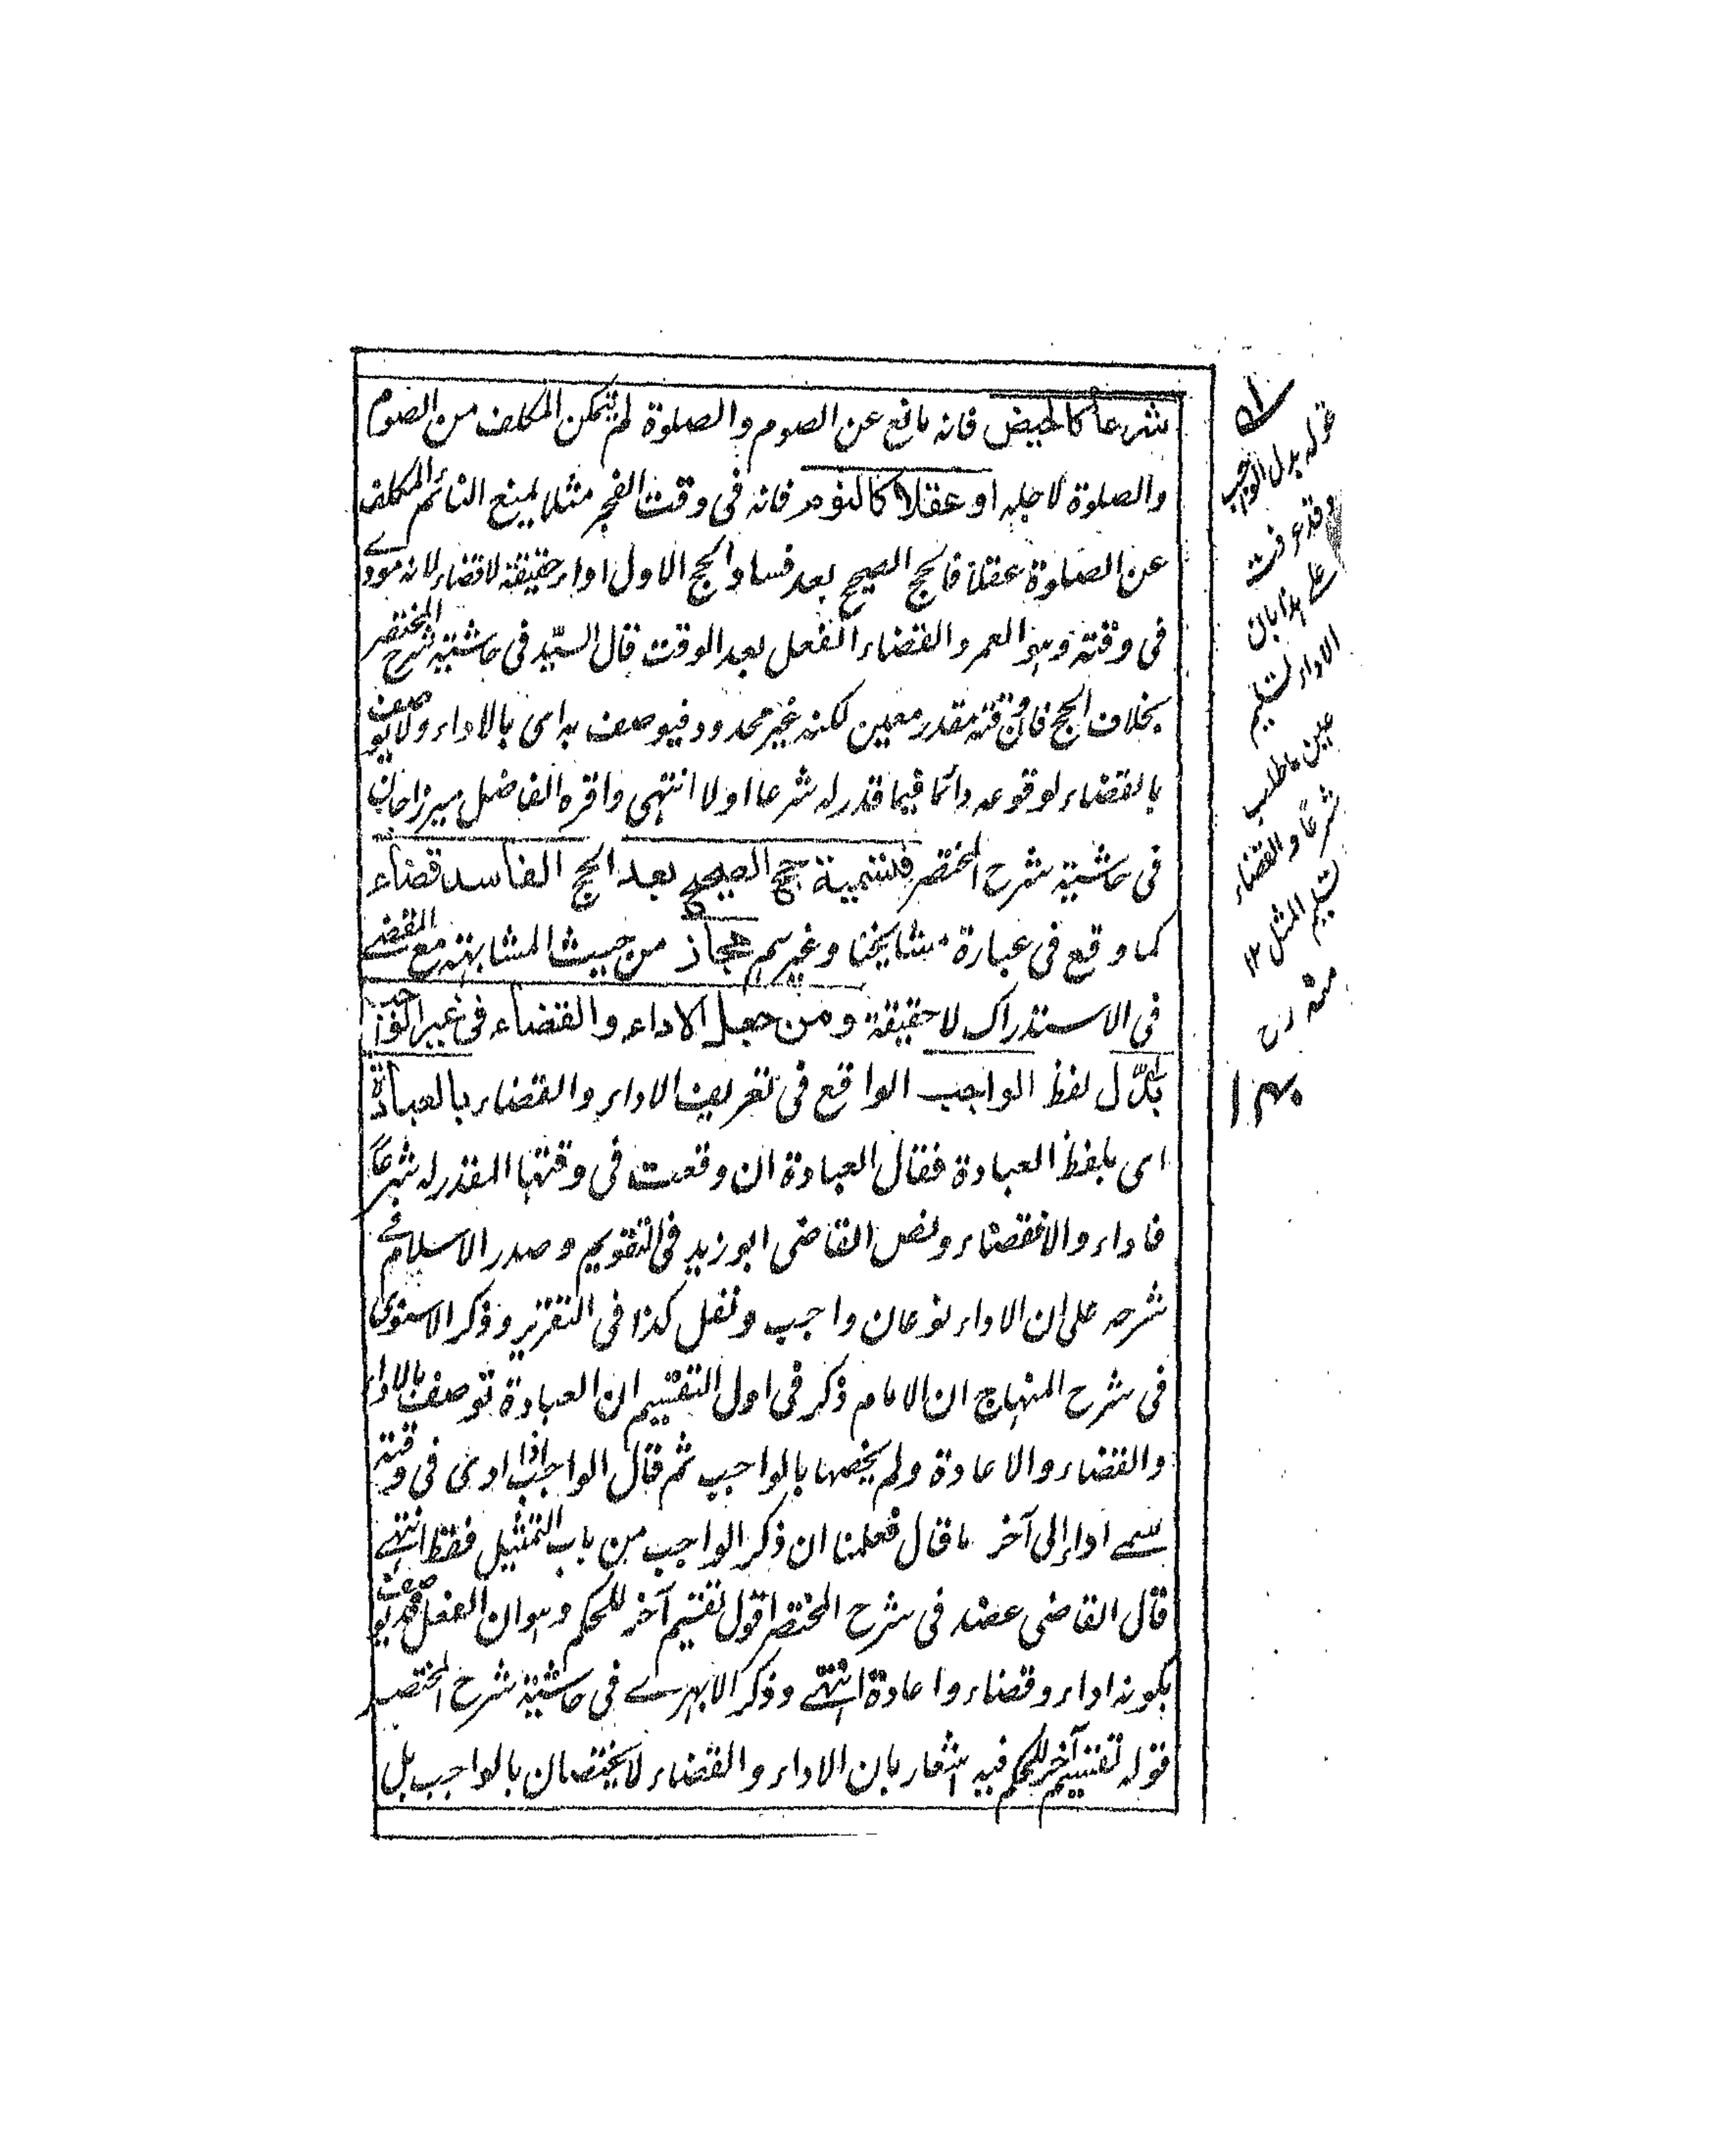 شرعا كالحيض فانه مانع عن الصوم والصلوة لم يتمكن المكلف من الصوم
والصلوة لاجله او عقلا كالنوم فانه فى وقت الفجر مثلا يمنع النائم المكلف
عن الصلوة عقلا فالحج الصحيح بعد فساد الحج الاول اداء حقيقة لا قضاء لانه مودى
فى وقته وهو العمر والقضاء الفعل بعد الوقت قال السيّد فى حاشية شرح المختصر
بخلاف الحج فان وقته مقدر معين لكنه غير محدود فيوصف به اى بالاداء ولا يوصف
بالقضاء لوقوعه دائما فيما قدر له شرعا اولا انتهى واقره الفاضل ميرزاجان
فى حاشية شرح المختصر فتسمية حج الصحيح بعد الحج الفاسد قضاء
كما وقع فى عبارة مشايخنا وغيرهم مجاز من حيث المشابهة مع المقضے
فى الاستدراك لا حقيقة ومن جعل الاداء والقضاء فى غير الواجب
بدّل لفظ الواجب الواقع فى تعريف الاداء والقضاء بالعبادة
اى بلفظ العبادة فقال العبادة ان وقعت فى وقتها المقدر له شرعًا
فاداء والا فقضاء ونص القاضى ابو زيد فى التقويم وصدر الاسلام فے
شرحه على ان الاداء نوعان واجب ونفل كذا فى التقرير وذكر الاسنوى
فى شرح المنهاج ان الامام ذكر فى اول التقسيم ان العبادة توصف بالاداء
والقضاء والاعادة ولم يخصها بالواجب ثم قال الواجب اذا ادى فى وقته
سمے اداء الى آخر ما قال فعلمنا ان ذكر الواجب من باب التمثيل فقط انتهے
قال القاضى عضد فى شرح المختصر اقول تقسيم آخر للحكم وهو ان الفعل قد يوصف
بكونه اداء وقضاء واعادة انتهے وذكر الابهرے فى حاشية شرح المختصر
قوله تقسيم آخر للحكم فيه اشعار بان الاداء والقضاء لا يختصان بالواجب بل
۵۱
قوله بدل الواجب
وقد عرفت
علے هذا بان
الاداء تسليم
عين ما طلب
شرعًا والقضاء
تسليم المثل ۱۲
منه رح